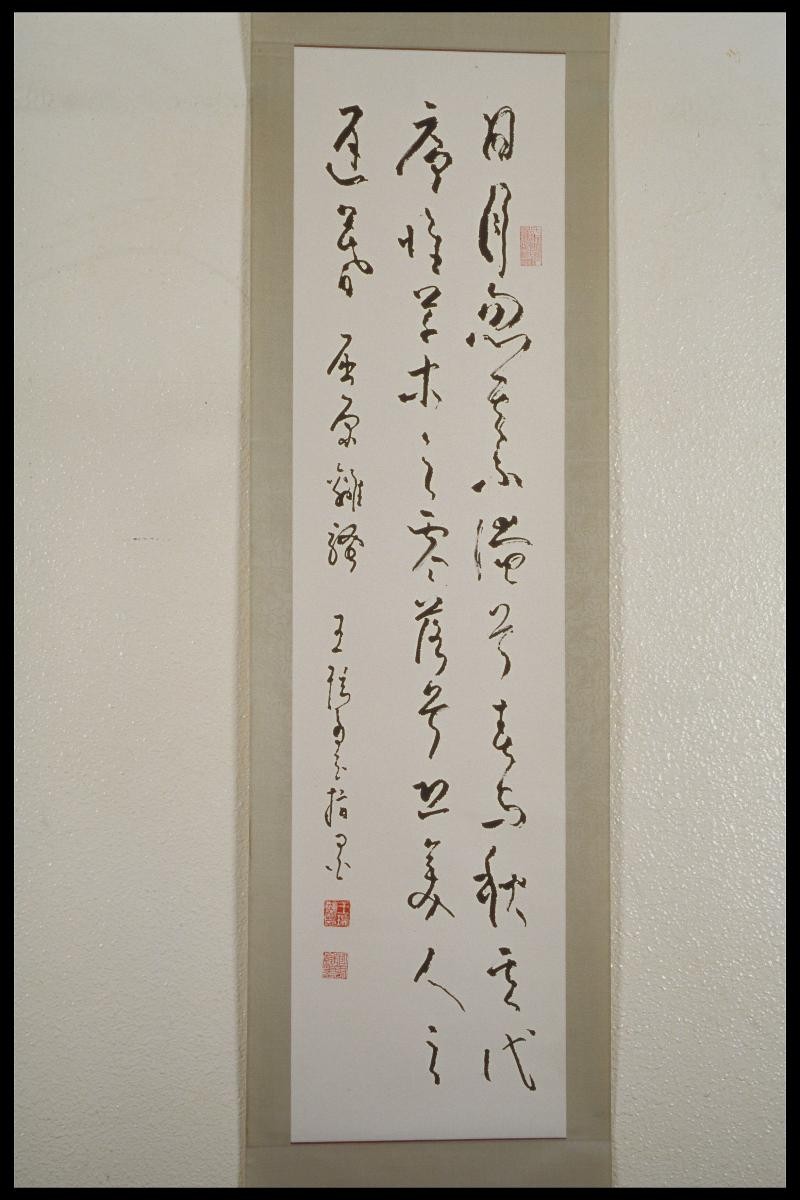 日月忽其不淹兮春与秋其代
序惟草木之零落兮恐美人之
遲暮 屈原離騷 王 指墨